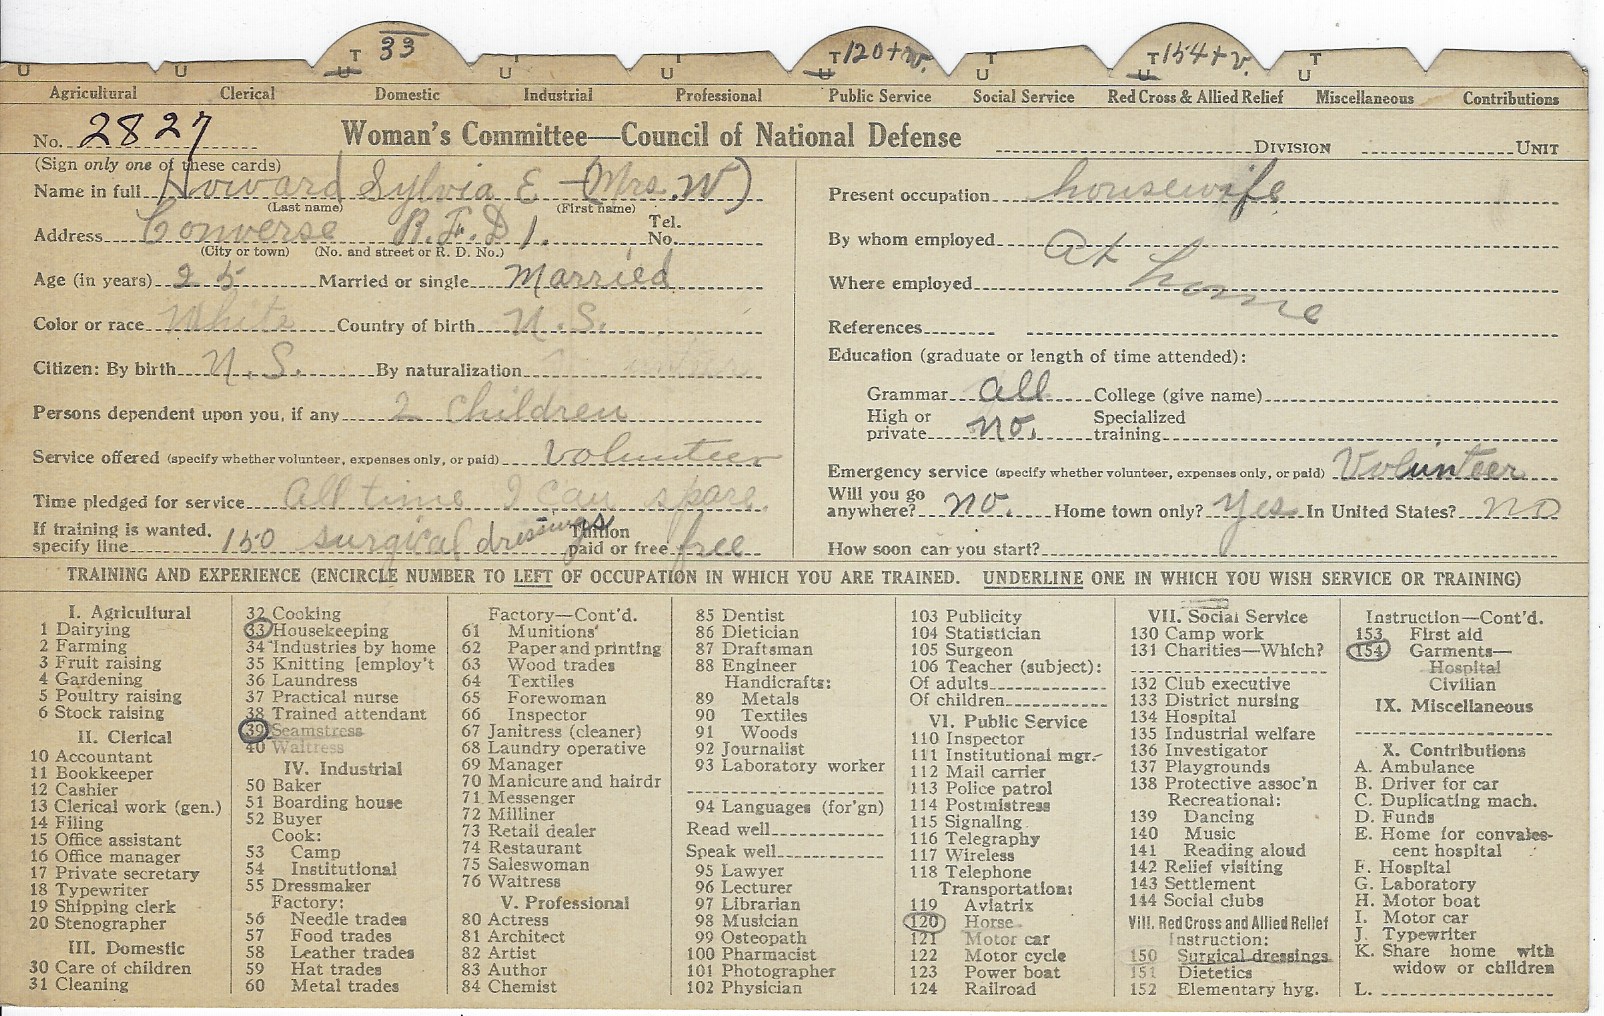 33 120+v. 154+v.
U U T U T U T U T U T U T U T U
Agricultural Clerical Domestic Industrial Professional Public Service Social Service Red Cross & Allied Relief Miscellaneous Contributions
No. 2827 Woman's Committee—Council of National Defense DIVISION UNIT
(Sign only one of these cards)
Name in full Howard Sylvia E - (Mrs. W)
(Last name) (First name)
Address Converse R.F.D 1. Tel. No.
(City or town) (No. and street or R. D. No.)
Age (in years) 25 Married or single Married
Color or race White Country of birth U.S.
Citizen: By birth U.S. By naturalization
Persons dependent upon you, if any 2 children
Service offered (specify whether volunteer, expenses only, or paid) Volunteer
Time pledged for service All time I can spare.
If training is wanted, specify line 150 surgical dressings Tuition paid or free free
Present occupation housewife
By whom employed At
Where employed home
References
Education (graduate or length of time attended):
Grammar all College (give name)
High or private no. Specialized training
Emergency service (specify whether volunteer, expenses only, or paid) Volunteer
Will you go anywhere? no. Home town only? Yes In United States? no
How soon can you start?
TRAINING AND EXPERIENCE (ENCIRCLE NUMBER TO LEFT OF OCCUPATION IN WHICH YOU ARE TRAINED. UNDERLINE ONE IN WHICH YOU WISH SERVICE OR TRAINING)
I. Agricultural
1 Dairying
2 Farming
3 Fruit raising
4 Gardening
5 Poultry raising
6 Stock raising
II. Clerical
10 Accountant
11 Bookkeeper
12 Cashier
13 Clerical work (gen.)
14 Filing
15 Office assistant
16 Office manager
17 Private secretary
18 Typewriter
19 Shipping clerk
20 Stenographer
III. Domestic
30 Care of children
31 Cleaning
32 Cooking
33 Housekeeping
34 Industries by home
35 Knitting [employ't
36 Laundress
37 Practical nurse
38 Trained attendant
39 Seamstress
40 Waitress
IV. Industrial
50 Baker
51 Boarding house
52 Buyer
Cook:
53 Camp
54 Institutional
55 Dressmaker
Factory:
56 Needle trades
57 Food trades
58 Leather trades
59 Hat trades
60 Metal trades
Factory—Cont'd.
61 Munitions
62 Paper and printing
63 Wood trades
64 Textiles
65 Forewoman
66 Inspector
67 Janitress (cleaner)
68 Laundry operative
69 Manager
70 Manicure and hairdr
71 Messenger
72 Milliner
73 Retail dealer
74 Restaurant
75 Saleswoman
76 Waitress
V. Professional
80 Actress
81 Architect
82 Artist
83 Author
84 Chemist
85 Dentist
86 Dietician
87 Draftsman
88 Engineer
Handicrafts:
89 Metals
90 Textiles
91 Woods
92 Journalist
93 Laboratory worker
94 Languages (for'gn)
Read well
Speak well
95 Lawyer
96 Lecturer
97 Librarian
98 Musician
99 Osteopath
100 Pharmacist
101 Photographer
102 Physician
103 Publicity
104 Statistician
105 Surgeon
106 Teacher (subject):
Of adults
Of children
VI. Public Service
110 Inspector
111 Institutional mgr.
112 Mail carrier
113 Police patrol
114 Postmistress
115 Signaling
116 Telegraphy
117 Wireless
118 Telephone
Transportation:
119 Aviatrix
120 Horse
121 Motor car
122 Motor cycle
123 Power boat
124 Railroad
VII. Social Service
130 Camp work
131 Charities—Which?
132 Club executive
133 District nursing
134 Hospital
135 Industrial welfare
136 Investigator
137 Playgrounds
138 Protective assoc'n
Recreational:
139 Dancing
140 Music
141 Reading aloud
142 Relief visiting
143 Settlement
144 Social clubs
VIII. Red Cross and Allied Relief
Instruction:
150 Surgical dressings
151 Dietetics
152 Elementary hyg.
Instruction—Cont'd.
153 First aid
154 Garments—
Hospital
Civilian
IX. Miscellaneous
X. Contributions
A. Ambulance
B. Driver for car
C. Duplicating mach.
D. Funds
E. Home for convalescent hospital
F. Hospital
G. Laboratory
H. Motor boat
I. Motor car
J. Typewriter
K. Share home with widow or children
L.